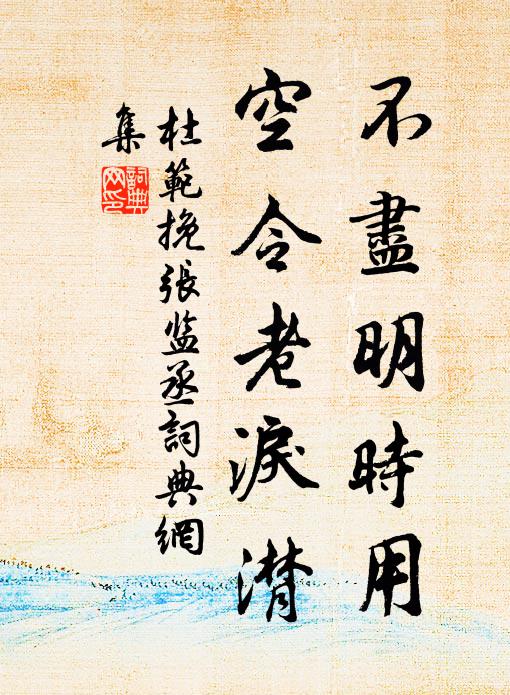 不盡明時用
空令老淚潸
杜範挽張監丞詞典網
集
詞典網印